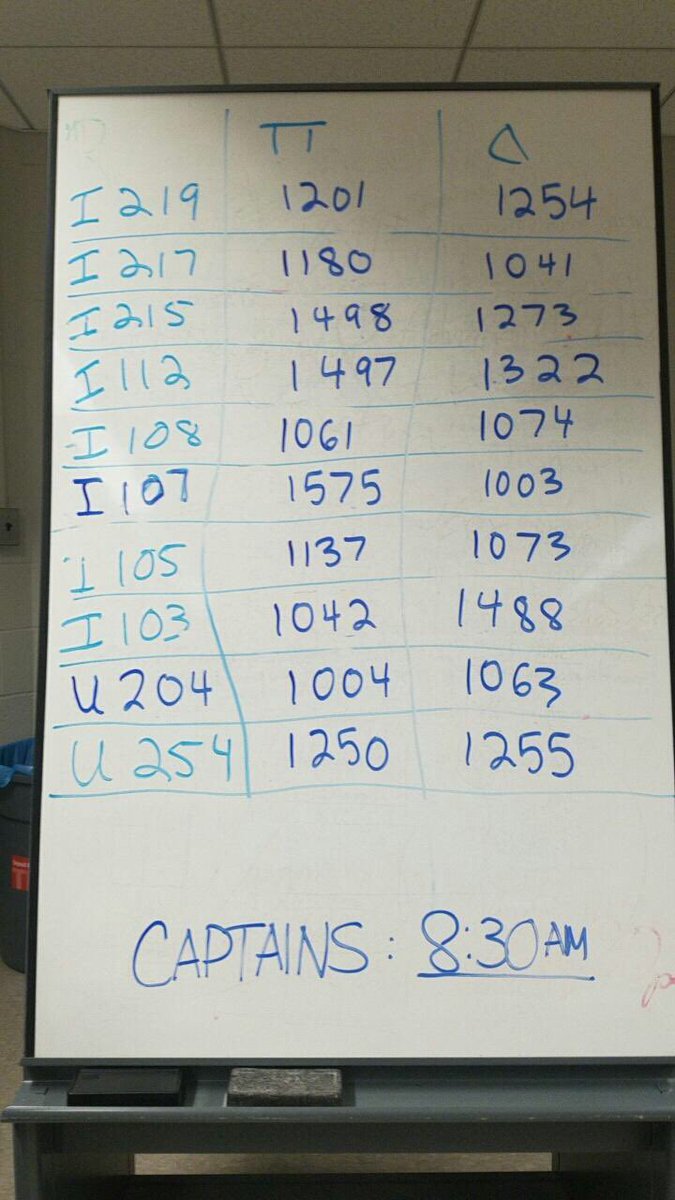 π Δ
I 219 1201 1254
I 217 1180 1041
I 215 1498 1273
I 112 1497 1322
I 108 1061 1074
I 107 1575 1003
I 105 1137 1073
I 103 1042 1488
U 204 1004 1063
U 254 1250 1255
CAPTAINS: 8:30AM